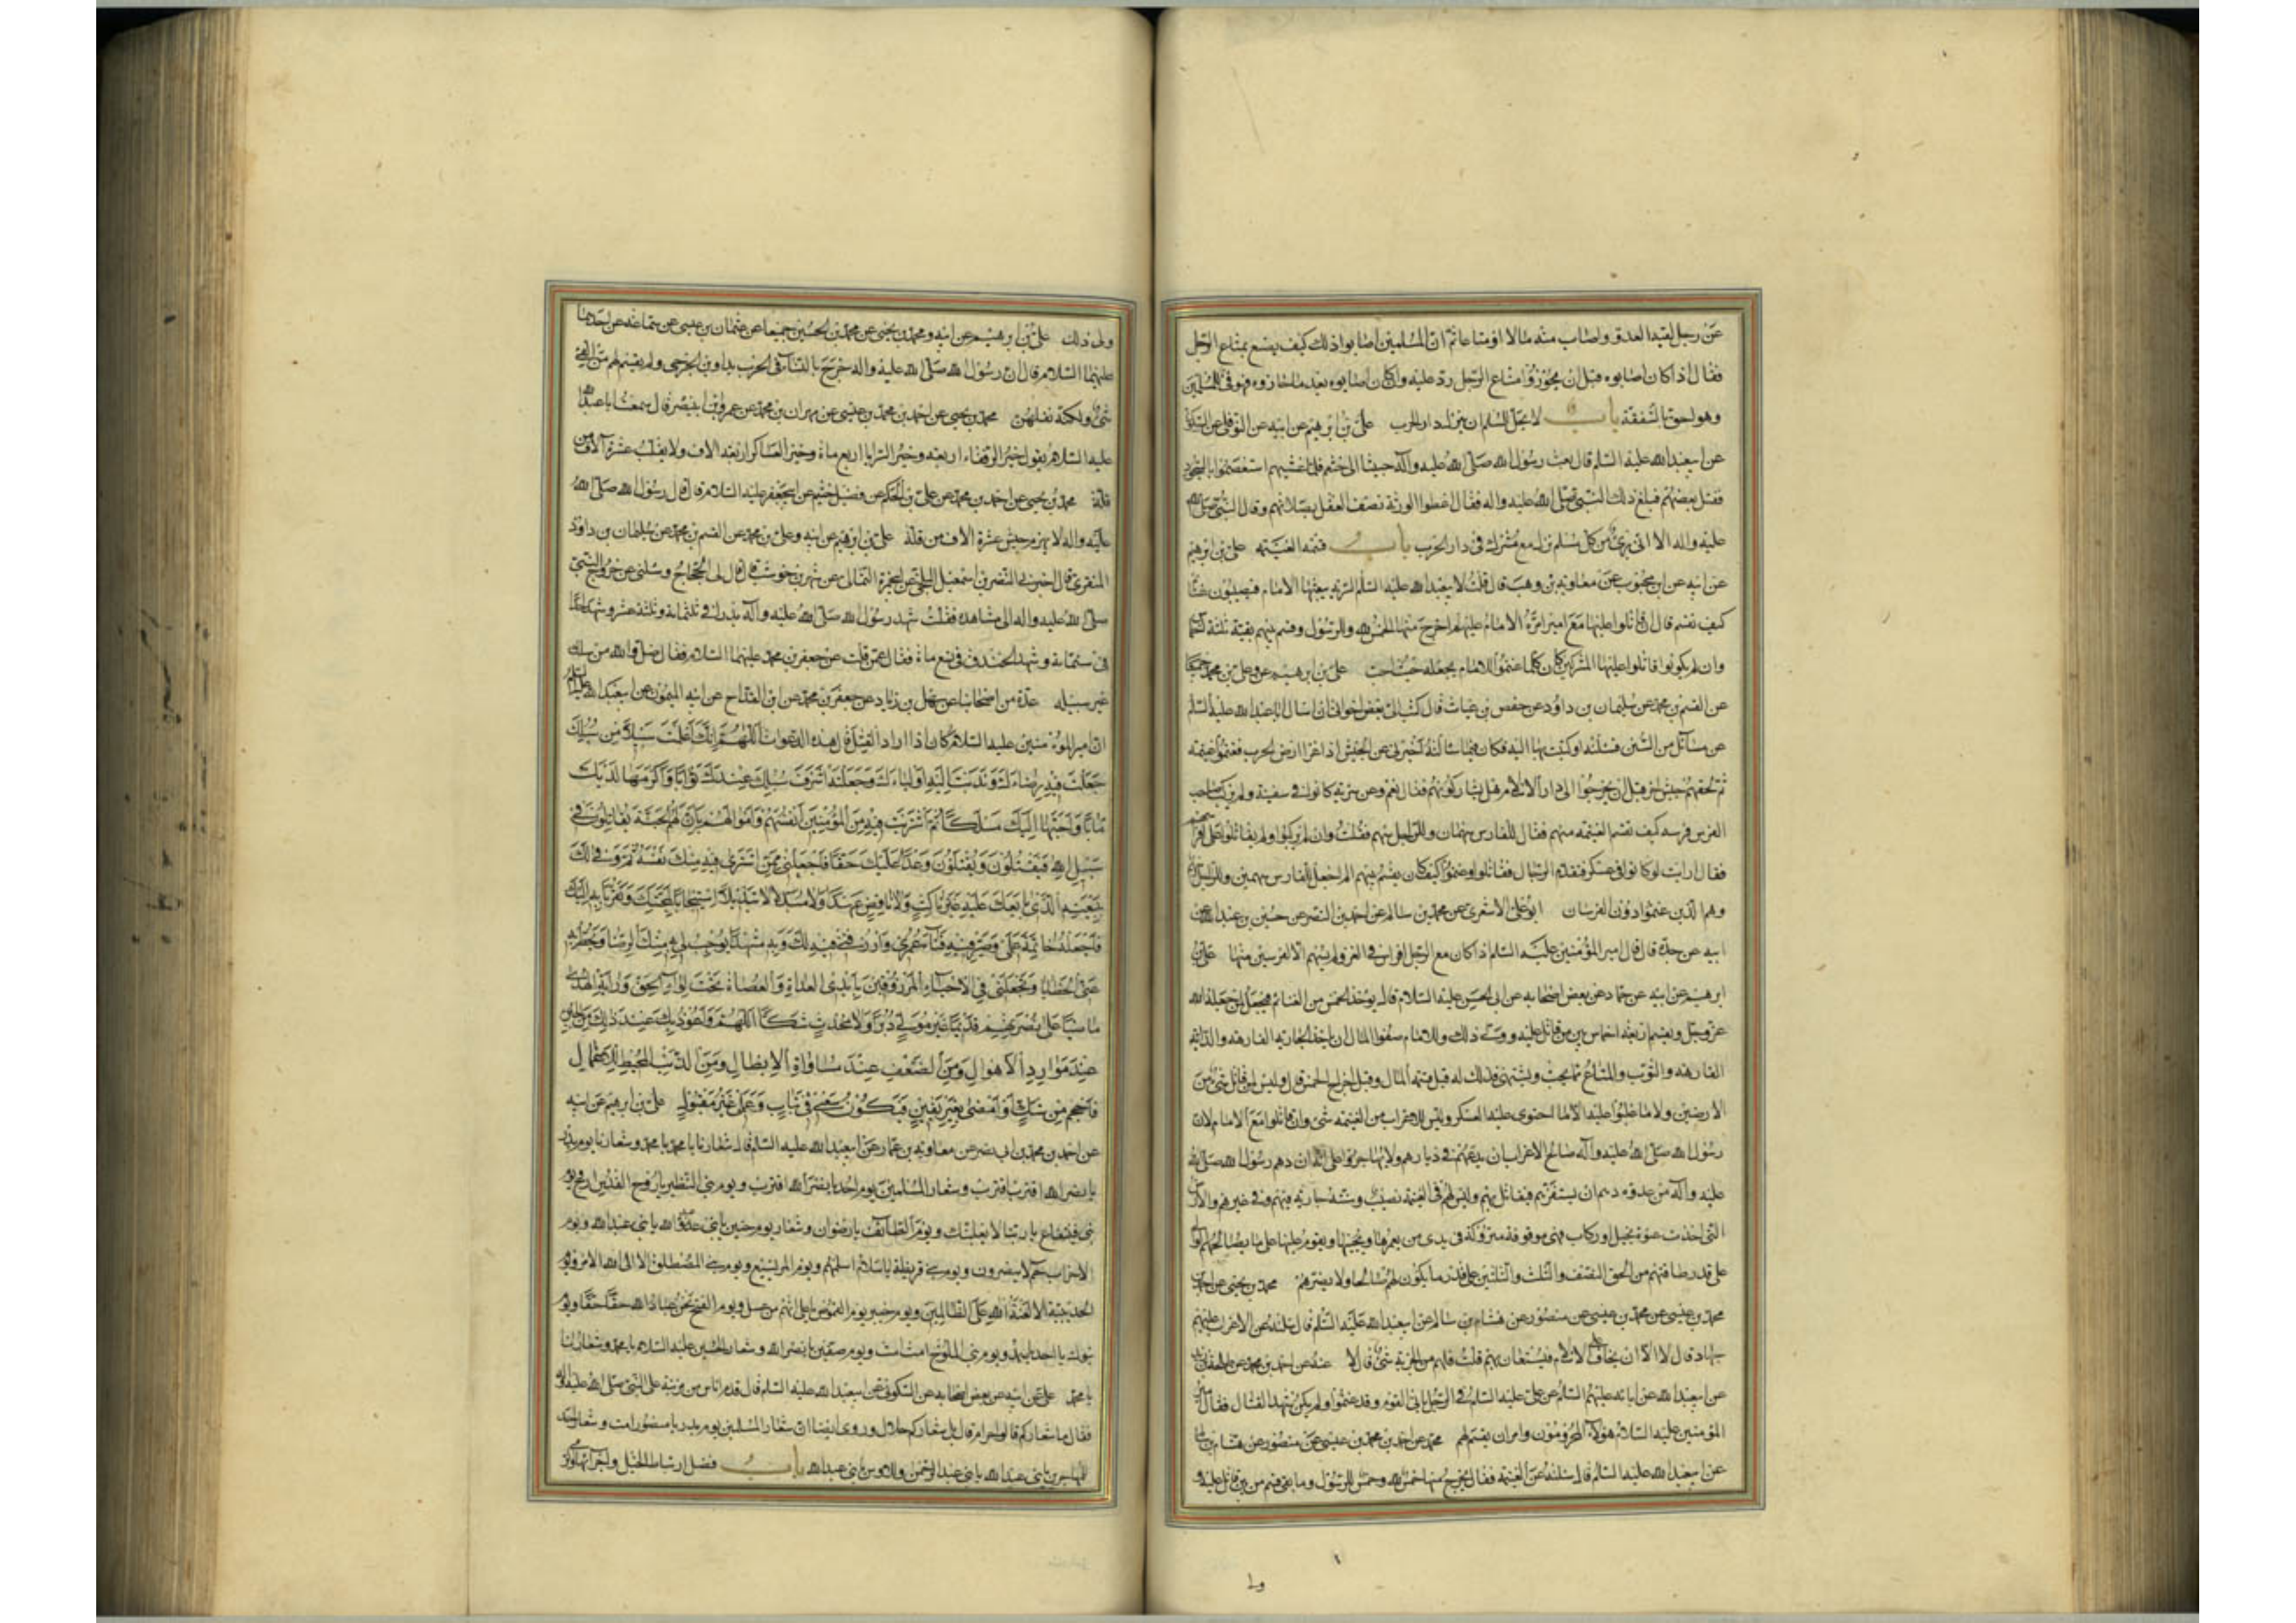 عن رجل لقيه العدو واصاب منه مالا او متاعا ثم ان المسلمين اصابوا ذلك كيف يصنع بمتاع الرجل
فقال اذا كان اصابوه قبل ان يحوزوا متاع الرجل رد عليه وان كان اصابوه بعد ما حازوه فهو فئ للمسلمين
وهو احق بالشفعة باب لا يحل للمسلم ان ينزل دار الحرب علي بن ابرهيم عن ابيه عن النوفلي عن السكوني
عن ابيعبدالله عليه السلم قال بعث رسول الله صلى الله عليه وآله جيشا الى خثعم فلما غشيهم استعصموا بالسجود
فقتل بعضهم فبلغ ذلك النبي صلى الله عليه واله فقال اعطوا الورثة نصف العقل بصلاتهم وقال النبي صلى الله
عليه واله الا اني برئ من كل مسلم نزل مع مشرك في دار الحرب باب قسمة الغنيمة علي بن ابرهيم
عن ابيه عن ابن محبوب عن معاوية بن وهب قال قلت لابيعبدالله عليه السلم السرية يبعثها الامام فيصيبون غنائما
كيف تقسم قال ان قاتلوا عليها مع امير امره الامام عليهم اخرج منها الخمس لله والرسول وقسم بينهم بقية ثلثة اخماس
وان لم يكونوا قاتلوا عليها المشركين كان كلما غنموا للامام يجعله حيث احب علي بن ابرهيم عن وعلي بن محمد جميعا
عن القسم بن محمد عن سليمان بن داود عن حفص بن غياث قال كتب الى بعض اخواني ان اسال ابا عبدالله عليه السلم
عن مسائل من السنن فسئلته او كتبت بها اليه فكان فيما سالته اخبرني عن الجيش اذا غزا ارض الحرب فغنموا غنيمة
ثم لحقهم جيش اخر قبل ان يخرجوا الى دار الاسلام هل يشاركونهم فقال نعم وعن سرية كانوا في سفينة ولم يركب صاحب
الفرس فرسه كيف تقسم الغنيمة منهم فقال للفارس سهمان وللراجل سهم فقلت وان لم يركبوا ولم يقاتلوا على افراسهم
فقال ارايت لو كانوا في عسكر فتقدم الرجال فقاتلوا وغنموا كيف كان يقسم بينهم الم اجعل للفارس سهمين وللراجل سهما
وهم الذين غنموا دون الفرسان ابو علي الاشعري عن محمد بن سالم عن احمد بن النضر عن حسين بن عبدالله عن
ابيه عن جده قال قال امير المؤمنين عليه السلم اذا كان مع الرجل افراس في الغزو لم يسهم الا لفرسين منها علي بن
ابرهيم عن ابيه عن حماد عن بعض اصحابه عن ابي الحسن عليه السلام قال يوخذ الخمس من الغنائم فيجعل لمن جعله الله
عز وجل ويقسم اربعة اخماس بين من قاتل عليه وولى ذلك وللامام صفو المال ان ياخذ الجارية الفارهة والدابة
الفارهة والثوب والمتاع مما يحب ويشتهي فذلك له قبل قسمة المال وقبل اخراج الخمس قال وليس لمن قاتل شئ من
الارضين ولا ما غلبوا عليه الا ما احتوى عليه العسكر وليس للاعراب من الغنيمة شئ وان قاتلوا مع الامام لان
رسول الله صلى الله عليه وآله صالح الاعراب ان يدعهم في ديارهم ولا يهاجروا على انه ان دهم رسول الله صلى الله
عليه وآله من عدوه دهم ان يستفزهم فيقاتل بهم وليس لهم في الغنيمة نصيب وسنة جارية فيهم وفي غيرهم والارض
التي اخذت عنوة بخيل او ركاب فهي موقوفة متروكة في يدي من يعمرها ويحييها ويقوم عليها على ما يصالحهم الوالي
على قدر طاقتهم من الحق النصف والثلث والثلثين على قدر ما يكون لهم صالحا ولا يضرهم محمد بن يحيى عن احمد بن
محمد بن عيسى عن محمد بن عيسى عن منصور عن هشام بن سالم عن ابيعبدالله عليه السلم قال سالته عن الاعراب عليهم
جهاد قال لا الا ان يخاف على الاسلام فيستعان بهم قلت فلهم من الجزية شئ قال لا عنه عن احمد بن محمد عن
عن ابيعبدالله عن ابائه عليهم السلم عن علي عليه السلم في الرجل ياتي القوم وقد غنموا ولم يكن شهد القتال فقال امير
المؤمنين عليه السلام هؤلاء المحرومون وامر ان يقسم لهم محمد عن احمد بن محمد بن عيسى عن منصور عن هشام بن سالم
عن ابيعبدالله عليه السلم قال سئلته عن الغنيمة فقال يخرج منها خمس لله وخمس للرسول وما بقي قسم بين من قاتل عليه و
ولى ذلك علي بن ابرهيم عن ابيه ومحمد بن يحيى عن محمد بن الحسين جميعا عن عثمان بن عيسى عن سماعة عن احدهما
عليهما السلام قال ان رسول الله صلى الله عليه واله خرج بالنساء في الحرب يداوين الجرحى ولم يقسم لهم من الفئ
شئ ولكنه نفلهن محمد بن يحيى عن احمد بن محمد بن عيسى عن مهران بن محمد عن عمرو بن ابي نصر قال سمعت ابا عبدالله
عليه السلام يقول خير الرفقاء اربعة وخير السرايا اربع مائة وخير العساكر اربعة الاف ولا يغلب عشرة آلاف من
قلة محمد بن يحيى عن احمد بن محمد عن علي بن الحكم عن فضيل خثيم عن ابيجعفر عليه السلام قال قال رسول الله صلى الله
عليه واله لا يهزم جيش عشرة الاف من قلة علي بن ابرهيم عن ابيه وعلي بن محمد عن القسم بن محمد عن سليمان بن داود
المنقري قال اخبرني النضر بن اسمعيل البلخي عن ابيحمزة الثمالي عن شهر بن حوشب قال قال لي الحجاج وسئلني عن خروج النبي
صلى الله عليه واله الى مشاهده فقلت شهد رسول الله صلى الله عليه وآله بدرا في ثلثمائة وثلثة عشر وشهد احدا
في ستمائة وشهد الخندق في تسع مائة فقال عمن قلت عن جعفر بن محمد عليهما السلام فقال ضل والله من سلك
غير سبيله عدة من اصحابنا عن سهل بن زياد عن جعفر بن محمد عن ابن القداح عن ابيه الميمون عن ابيعبدالله عليه السلم
ان امير المؤمنين عليه السلام كان اذا اراد القتال قال هذه الدعوات اللهم انك اعلنت سبيلا من سبلك
جعلت فيه رضاءك وندبت اليه اولياءك وجعلته اشرف سبلك عندك ثوابا واكرمها لديك
مابا واحبها اليك مسلكا ثم اشتريت فيه من المؤمنين انفسهم واموالهم بان لهم الجنة يقاتلون في
سبيل الله فيقتلون ويقتلون وعدا عليك حقا فاجعلني ممن اشترى فيه منك نفسه ثم وفى لك
ببيعه الذي بايعك عليه غير ناكث ولا ناقض عهدا ولا مبدلا تبديلا استيجابا لمحبتك وتقربا به اليك
فاجعله خاتمة عملي وصير فيه فناء عمري وارزقني فيه لك وبه مشهدا توجب لي به منك الرضا وتحط به
عني الخطايا وتجعلني في الاحياء المرزوقين بايدي العداة والعصاة تحت لواء الحق وراية الهدى
ماضيا على نصرتهم قدما غير مولي دبرا ولا محدث شكا اللهم واعوذ بك عند ذلك من الجبن
عند موارد الاهوال ومن الضعف عند مساواة الابطال ومن الذنب المحبط للاعمال
فاحجم من شك او امضي بغير يقين فيكون سعيي في تباب وعملي غير مقبول علي بن ابرهيم عن ابيه
عن احمد بن محمد بن ابي نصر عن معاوية بن عمار عن ابيعبدالله عليه السلم قال شعارنا يا محمد يا محمد وشعارنا يوم بدر
يا نصر الله اقترب اقترب وشعار المسلمين يوم احد يا نصر الله اقترب ويوم بني النضير يا روح القدس ارح ويوم
بني قينقاع يا ربنا لا يغلبنك ويوم الطائف يا رضوان وشعار يوم حنين يا بني عبدالله يا بني عبدالله ويوم
الاحزاب حم لا يبصرون ويوم بني قريظة يا سلام اسلمهم ويوم المريسيع ويوم بني المصطلق الا الى الله الامر ويوم
الحديبية الا لعنة الله على الظالمين ويوم خيبر يوم القموص يا علي ائتهم من عل ويوم الفتح نحن عباد الله حقا حقا ويوم
تبوك يا احد يا صمد ويوم بني الملوح امت امت ويوم صفين يا نصر الله وشعار الحسين عليه السلام يا محمد وشعارنا
يا محمد علي عن ابيه عن بعض اصحابه عن السكوني عن ابيعبدالله عليه السلم قال قدم اناس من مزينة على النبي صلى الله عليه واله
فقال ما شعاركم قالوا حرام قال بل شعاركم حلال وروى ايضا ان شعار المسلمين يوم بدر يا منصور امت وشعار يوم احد
للمهاجرين يا بني عبدالله يا بني عبدالرحمن وللاوس يا بني عبدالله باب فضل ارتباط الخيل واجرائها والرمي